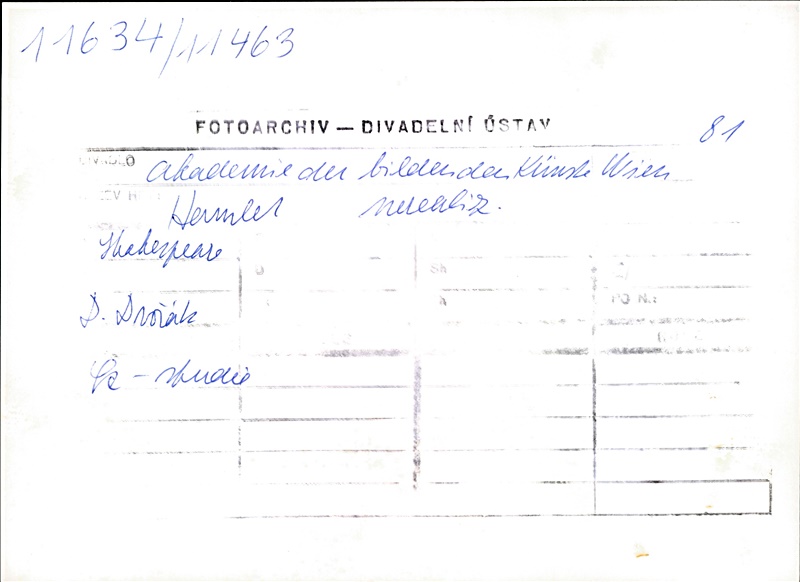 11634/11463
FOTOARCHIV — DIVADELNÍ ÚSTAV
81
Akademie der bildenden Künste Wien
Hamlet nerealiz.
Shakespeare
D. Dvořák
- studie
Sh
PO N.: